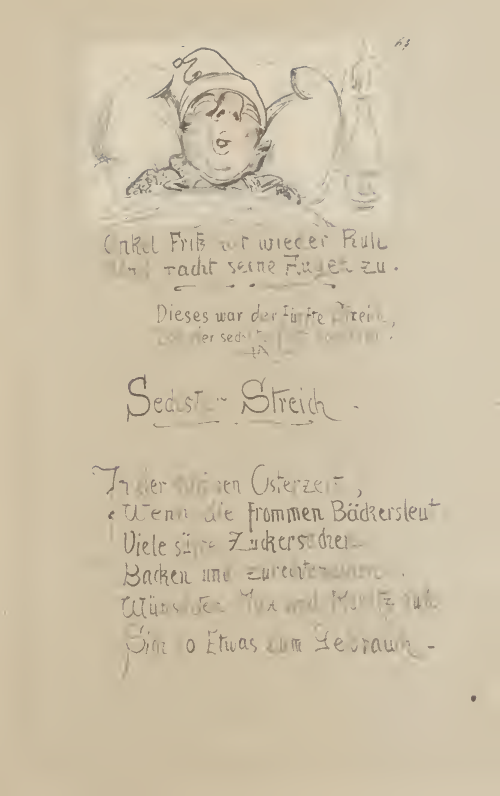 Onkel Fritz hat wieder Ruh
Und macht seine Augen zu.
Dieses war der fünfte Streich,
der sechste
Sechster Streich.
In der schönen Osterzeit,
Wenn die frommen Bäckersleut
Viele süße Zuckersachen
Backen und zurechtemachen.
Wünschten Max und Moritz auch
Sich so Etwas zum Gebrauch –